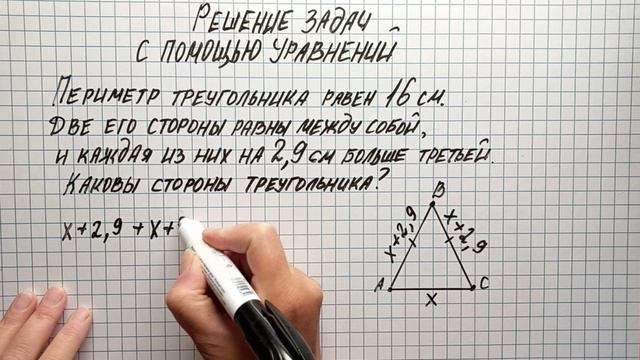 РЕШЕНИЕ ЗАДАЧ
С ПОМОЩЬЮ УРАВНЕНИЙ
ПЕРИМЕТР ТРЕУГОЛЬНИКА РАВЕН 16 СМ.
ДВЕ ЕГО СТОРОНЫ РАВНЫ МЕЖДУ СОБОЙ,
И КАЖДАЯ ИЗ НИХ НА 2,9 СМ БОЛЬШЕ ТРЕТЬЕЙ.
КАКОВЫ СТОРОНЫ ТРЕУГОЛЬНИКА?
X + 2,9 + X +
B
X + 2,9
X + 2,9
A
C
X